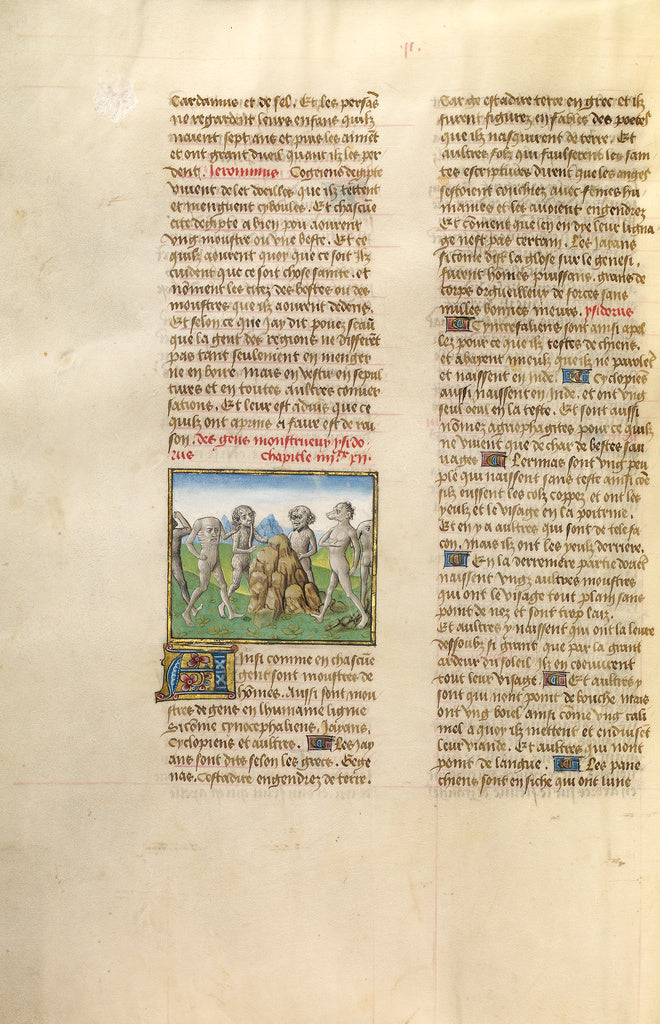 Cardamus et de sel. Et les persās
ne regardoīt leurs enfans quilz
naient sept ans et puis les aimēt
et ont grant dueil quant ilz les per
dent. Jeronimus Cogciens degypte
viuent de let doeilles que ilz tettent
et menguent cyboules. Et chascūe
cite degypte a bien pou aourent
vng monstre ou vne beste. Et ce
quilz aourent quoy que ce soit Ilz
cuident que ce soit chose sainte. et
nōment les citez des bestes ou des
monstres que ilz aourent dedens.
Et selon ce que iay dit pouez scauī
que la gent des regions ne differēt
pas tant seulement en menger
ne en boire mais en vestir en sepul
tures et en toutes aultres conuer
sations. Et leur est aduis que ce
quilz ont aprins a faire est de rai
son. des gens monstrueux ysido-
rus Chapitle iiijxx xij.
Ainsi comme en chascūe
gent sont monstres de
hōmes. Aussi sont mon
stres de gens en lhumaine lignie
Sicōme cynocephaliens, Jayans,
Cyclopiens et aultres. Les Jay
ans sont dits selon les grecs. Gege
nas. Cestadire engendrez de terre.
Car ge estadire terre en grec et ilz
furent figurez en fables des poetes
que ilz nasquirent de terre. Et
aultres folz qui faulserent les sain
tes escriptures dirent que les anges
sestoient couchiez auec fēmes hu
maines et les auoient engendrez
Et cōment que len en dye leur ligna
ge nest pas certain. Les Jayans
sicōme dist la glose sur le genesi.
furent hōmes puissans. grans de
corps orgueilleux de forces sans
nulles bonnes meurs. ysidorus
Cynocefaliens sont ainsi apel
lez pour ce que ilz testes de chiens.
et abayent mieulx que ilz ne parolēt
et naissent en inde. Cyclopiēs
aussi naissent en inde. et ont vng
seul oeul en la teste. Et sont aussi
nōmez agriophagites pour ce quilz
ne viuent que de char de bestes sau
uages Lerimas sont vng peu
ple qui naissent sans teste ainsi cōe
silz eussent les colz coppez et ont les
yeulx et le visage en la poitrine.
Et en y a aultres qui sont de telefa
con. mais ilz ont les yeulx derriere.
En la derreniere partie doriēt
naissent vngz aultres monstres
qui ont le visage tout plain sans
point de nez et sont trop laiz.
Et aultres y naissent qui ont la leure
dessoubz si grant que par la grant
ardeur du soleil Ilz en coeuurent
tout leur visage. Et aultres y
sont qui nont point de bouche mais
ont vng boiel ainsi cōme vng cali
mel a quoy ilz mettent et enduisēt
leur viande. Et aultres qui nont
point de langue. Les pane
chiens sont en siche qui ont lune